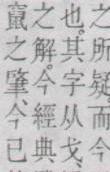 之所疑而今
也其字从戈
之解今經典
竄之肇今已